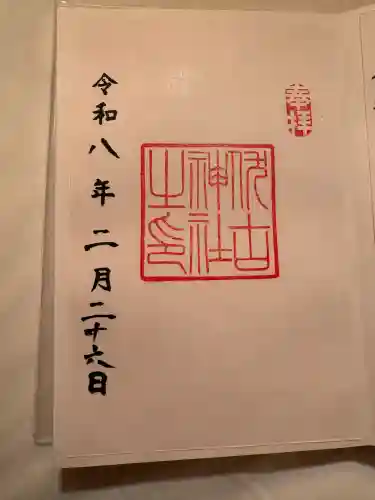 奉拝
伊古
神社
之印
令和八年二月二十六日